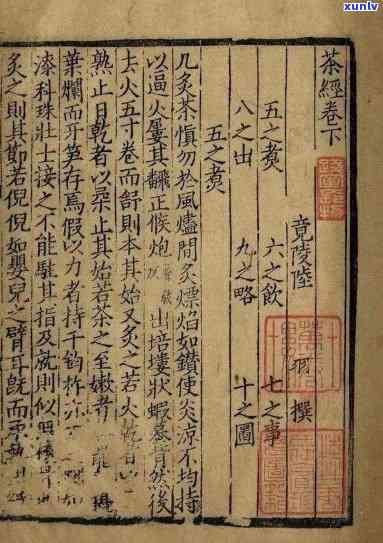 xunlv
茶經卷下
竟陵陸 撰
五之煑 六之飲 七之事
八之出 九之略 十之圖
五之煑
凡炙茶慎勿於風燼間炙熛焰如鑽使炎涼不均持
以逼火屢其飜正候炮 出培塿狀蝦蟇背然後
去火五寸卷而舒則本其始又炙之若火乾者
熟止日乾者以柔止其始若茶之至嫩者
葉爛而牙笋存焉假以力者持千鈞杵亦
漆科珠壯士接之不能駐其指及就則似
炙之則其節若倪倪如嬰兒之臂耳既而